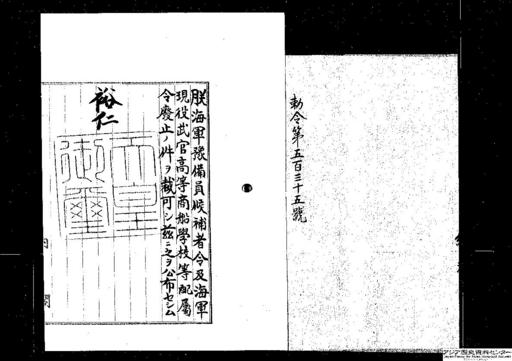 勅令第五百三十五號
朕海軍豫備員候補者令及海軍
現役武官高等商船學校等配屬
令廢止ノ件ヲ裁可シ茲ニ之ヲ公布セシム
裕仁
天皇
御璽
内閣
アジア歴史資料センター